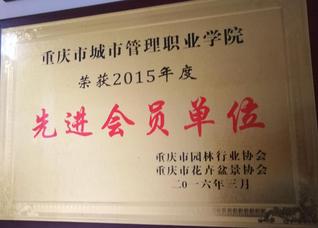 重庆市城市管理职业学院
荣获2015年度
先进会员单位
重庆市园林行业协会
重庆市花卉盆景协会
二〇一六年三月